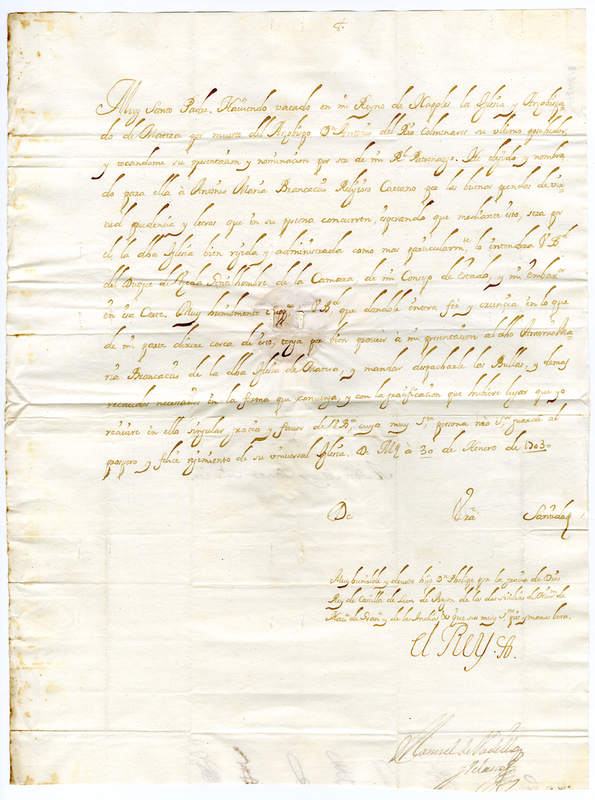 Muy Santo Padre. Haviendo vacado en mi Reyno de Napoles la Iglesia y Arzobispa
do de Matera por muerte del Arzobispo Dn Antonio del Rio Colmenares su ultimo poseedor,
y tocandome su presentacion y nominacion por ser de mi Rl Patronazgo. He elejido y nombra
do para ella à Antonio Maria Brancacius Religioso Caetano por las buenas prendas de vir
tud prudencia y letras que en su persona concurren, esperando que mediante esto, sera por
el la dha Iglesia bien rejida y administrada como mas particularmte lo entendera V. Bd
del Duque de Gentilhombre de la Camara de mi Consejo de Estado, y mi Embaxor
en esa Corte. Muy humilmente supco à V. Bd que dandole entera fée y creencia en lo que
de mi parte dixere cerca de esto, tenga por bien proveer à mi presentacion al dho Antonio Ma
ria Brancacius de la dha Iglesia de Matera, y mandar despacharle las Bullas, y demas
recaudos necesarios en la forma que convenga, y con la gratificacion que hubiere lugar que yo
recivire en ello singular gracia y favor de V. Bd, cuya muy sta persona nro sr guarde al
prospero y felice rejimiento de su universal Iglesia. De Md à 30 de Henero de 1703
De Vra Santidad
Muy humilde y devoto hijo Dn Phelipe por la gracia de Dios
Rey de Castilla de Leon de Aragon de las dos Sicilias de Jherusm de
Navarra de Granda y de las Indias &a que sus muy stos pies y manos besa.
el Rey.
Manuel de Vadillo
y Velasco